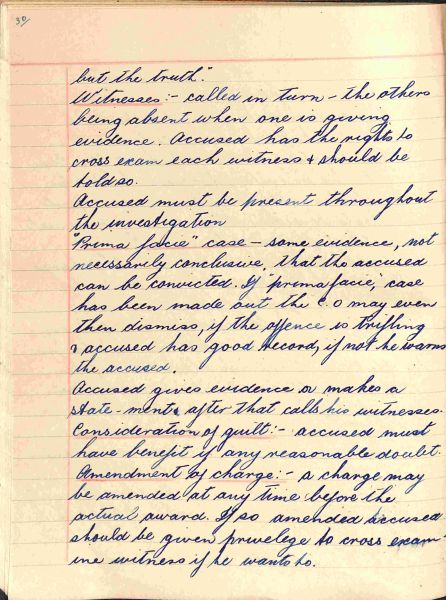 30/
but the truth".
Witnesses:- called in turn - the others
being absent when one is giving
evidence. Accused has the rights to
cross exam each witness & should be
told so.
Accused must be present throughout
the investigation
"Prima facie" case - some evidence, not
necessarily conclusive, that the accused
can be convicted. If "prima facie," case
has been made out the C.O may even
then dismiss, if the offence is trifling
& accused has good record, if not he warns
the accused.
Accused gives evidence or makes a
state-ment & after that calls his witnesses.
Consideration of guilt:- accused must
have benefit if any reasonable doubt.
Amendment of charge:- a charge may
be amended at any time before the
actual award. If so amended accused
should be given privelege to cross exam-
ine witness if he wants to.